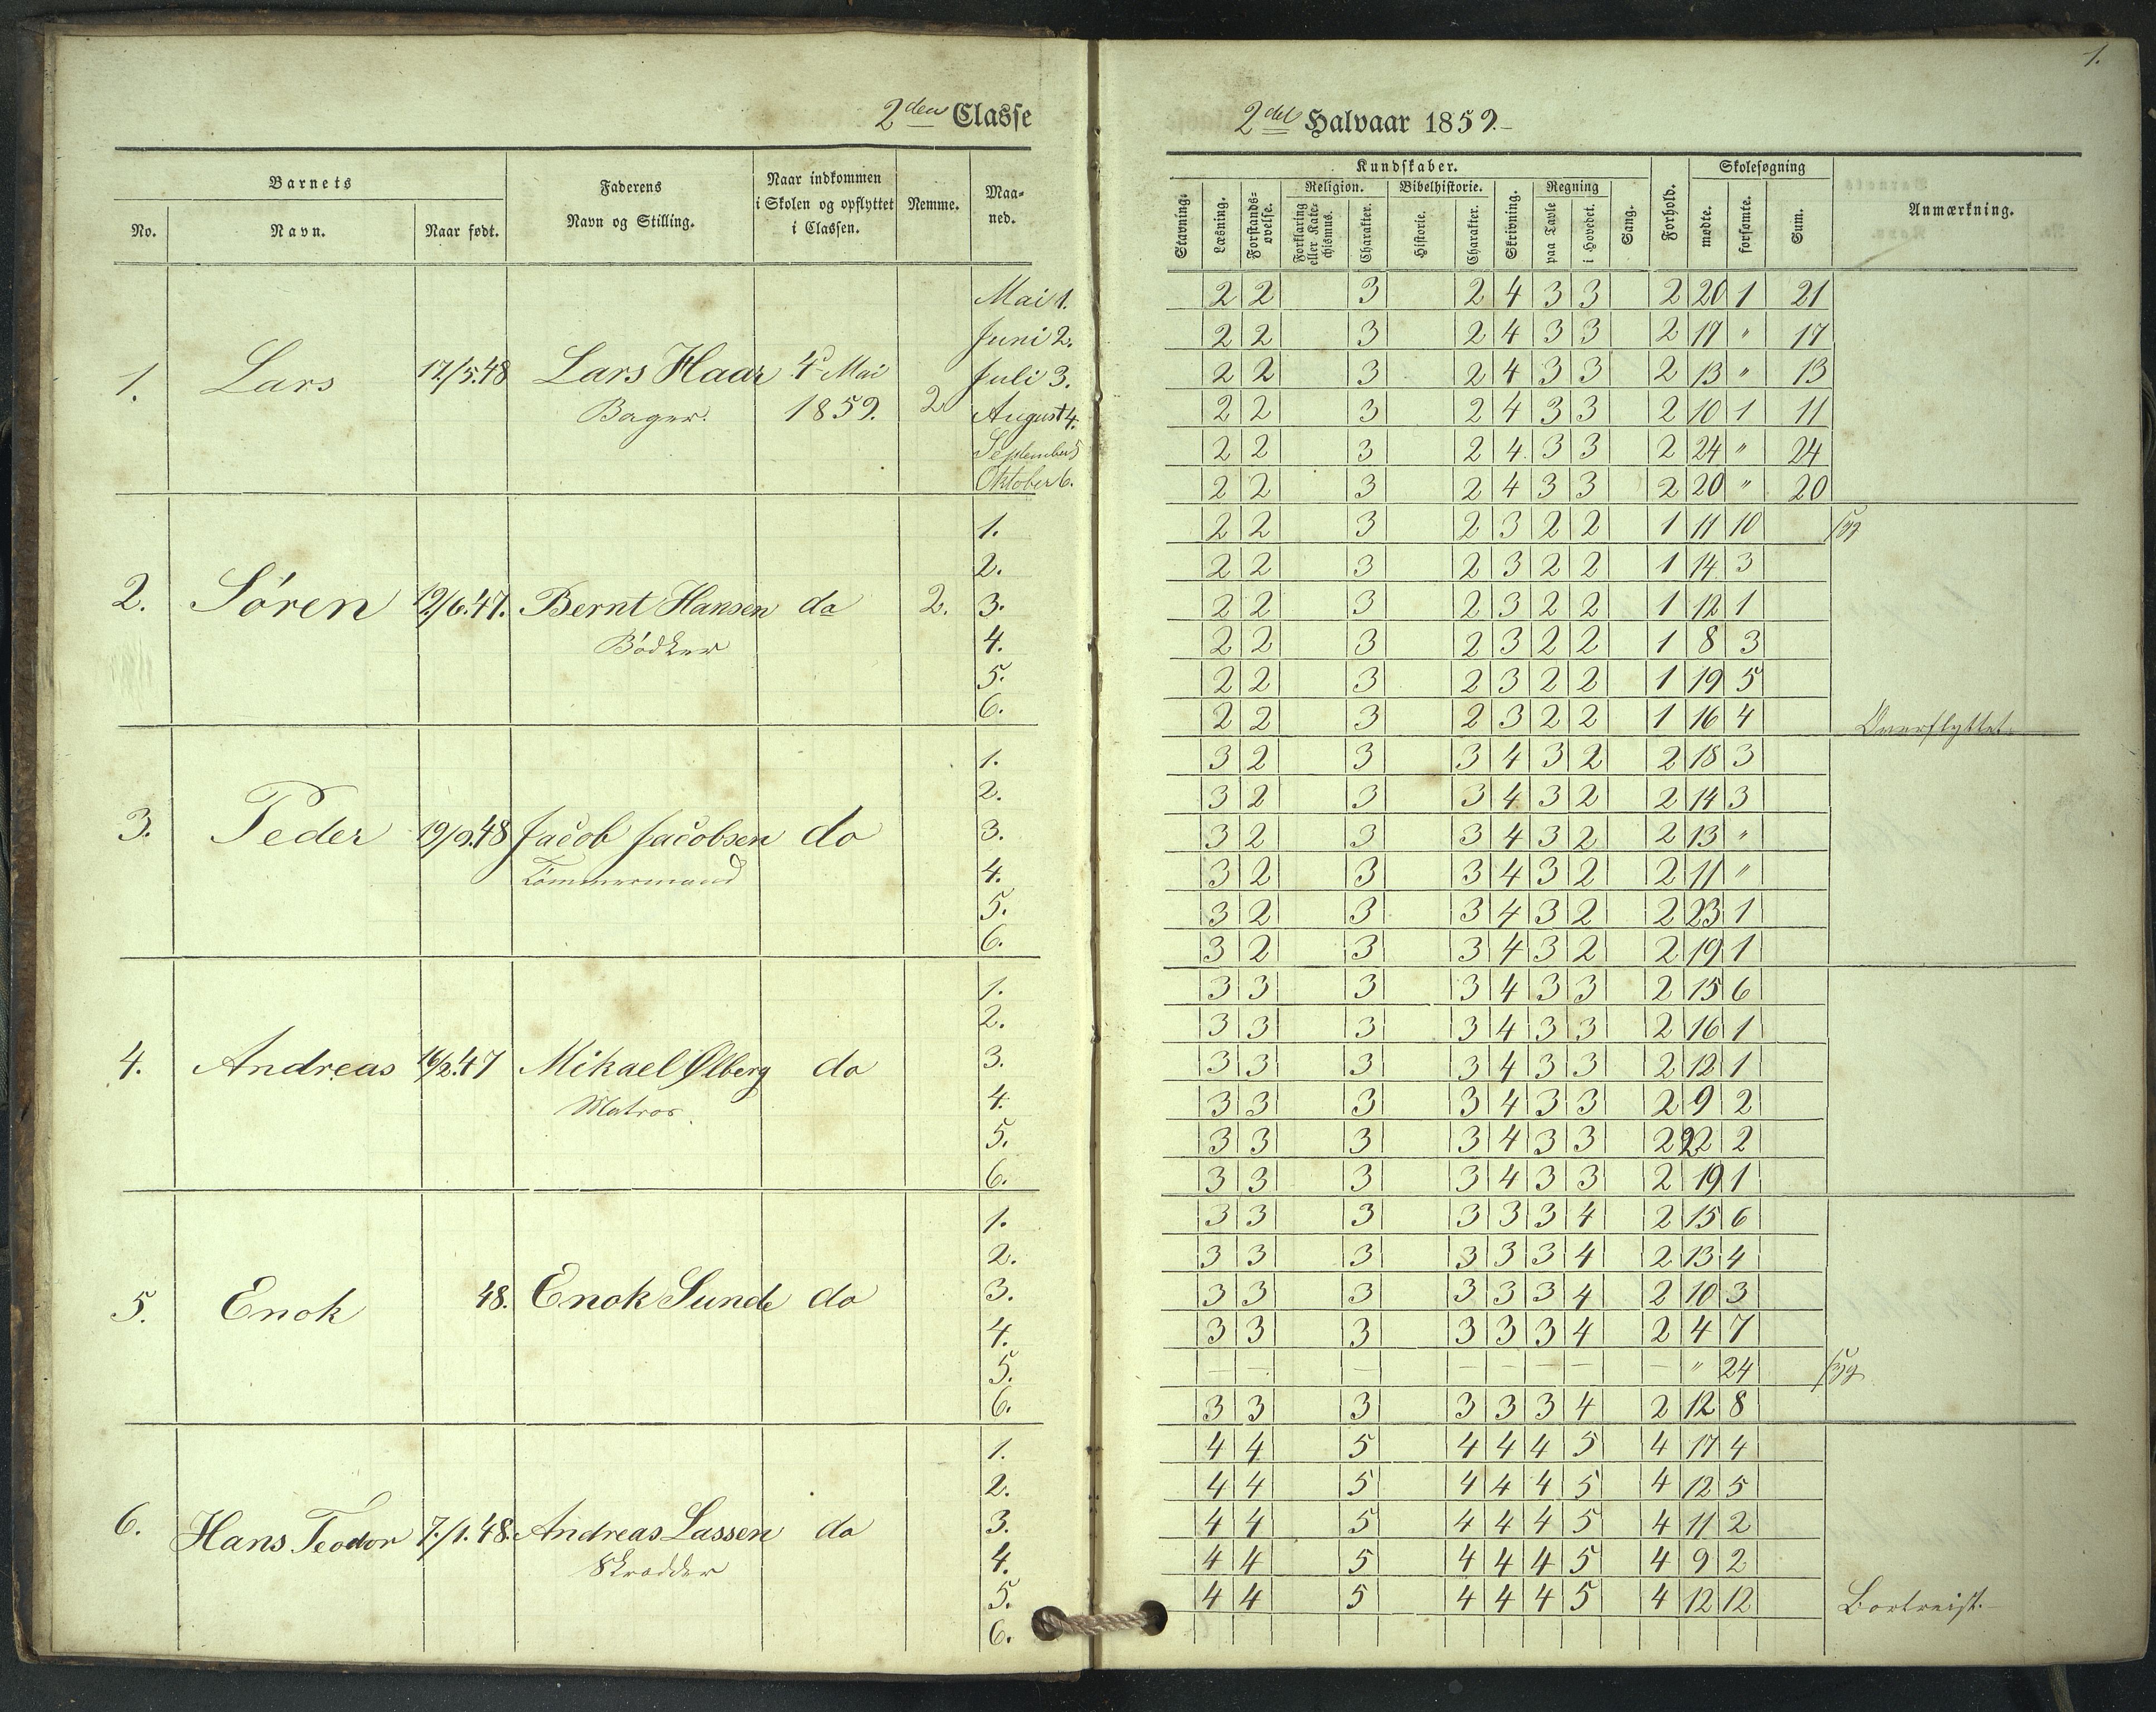 1.
2den Classe
2det Halvaar 1859.
Barnets
No.
Navn.
Naar født.
Faderens
Navn og Stilling.
Naar indkommen
i Skolen og opflyttet
i Classen.
Nemme.
Maa-
ned.
Kundskaber.
Stavning.
Læsning.
Forstands-
øvelse.
Religion.
Forklaring
eller Kate-
chismus.
Charakter.
Bibelhistorie.
Historie.
Charakter.
Skrivning.
Regning
paa Tavle
i Hovedet.
Sang.
Forhold.
Skolesøgning
mødte.
forsømte.
Sum.
Anmærkning.
1. Lars 17/5.48 Lars Haar 4d Mai
Bager. 1859. 2
Mai 1. 2 2 3 2 4 3 3 2 20 1 21
Juni 2. 2 2 3 2 4 3 3 2 17 " 17
Juli 3. 2 2 3 2 4 3 3 2 13 " 13
August 4. 2 2 3 2 4 3 3 2 10 1 11
September 5 2 2 3 2 4 3 3 2 24 " 24
Oktober 6. 2 2 3 2 4 3 3 2 20 " 20
2. Søren 12/6.47. Bernt Hansen do 2.
Bødker
1. 2 2 3 2 3 2 2 1 11 10 syg
2. 2 2 3 2 3 2 2 1 14 3
3. 2 2 3 2 3 2 2 1 12 1
4. 2 2 3 2 3 2 2 1 8 3
5. 2 2 3 2 3 2 2 1 19 5
6. 2 2 3 2 3 2 2 1 16 4 Overflyttet.
3. Peder 19/9.48 Jacob Jacobsen do
Tømmermand
1. 3 2 3 3 4 3 2 2 18 3
2. 3 2 3 3 4 3 2 2 14 3
3. 3 2 3 3 4 3 2 2 13 "
4. 3 2 3 3 4 3 2 2 11 "
5. 3 2 3 3 4 3 2 2 23 1
6. 3 2 3 3 4 3 2 2 19 1
4. Andreas 16/2.47 Mikael Ølberg do
Matros.
1. 3 3 3 3 4 3 3 2 15 6
2. 3 3 3 3 4 3 3 2 16 1
3. 3 3 3 3 4 3 3 2 12 1
4. 3 3 3 3 4 3 3 2 9 2
5. 3 3 3 3 4 3 3 2 22 2
6. 3 3 3 3 4 3 3 2 19 1
5. Enok 48. Enok Sunde do
1. 3 3 3 3 3 3 4 2 15 6
2. 3 3 3 3 3 3 4 2 13 4
3. 3 3 3 3 3 3 4 2 10 3
4. 3 3 3 3 3 3 4 2 4 7
5. – – – – – – – – " 24 syg
6. 3 3 3 3 3 3 4 2 12 8
6. Hans Teodor 7./1.48. Andreas Lassen do
Skrædder
1. 4 4 5 4 4 4 5 4 17 4
2. 4 4 5 4 4 4 5 4 12 5
3. 4 4 5 4 4 4 5 4 11 2
4. 4 4 5 4 4 4 5 4 9 2
5. 4 4 5 4 4 4 5 4 12 12 Bortreist.
6.